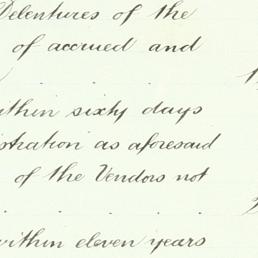 Debentures of the
of accrued and
within sixty days
istration as aforesaid
of the Vendors not
within eleven years